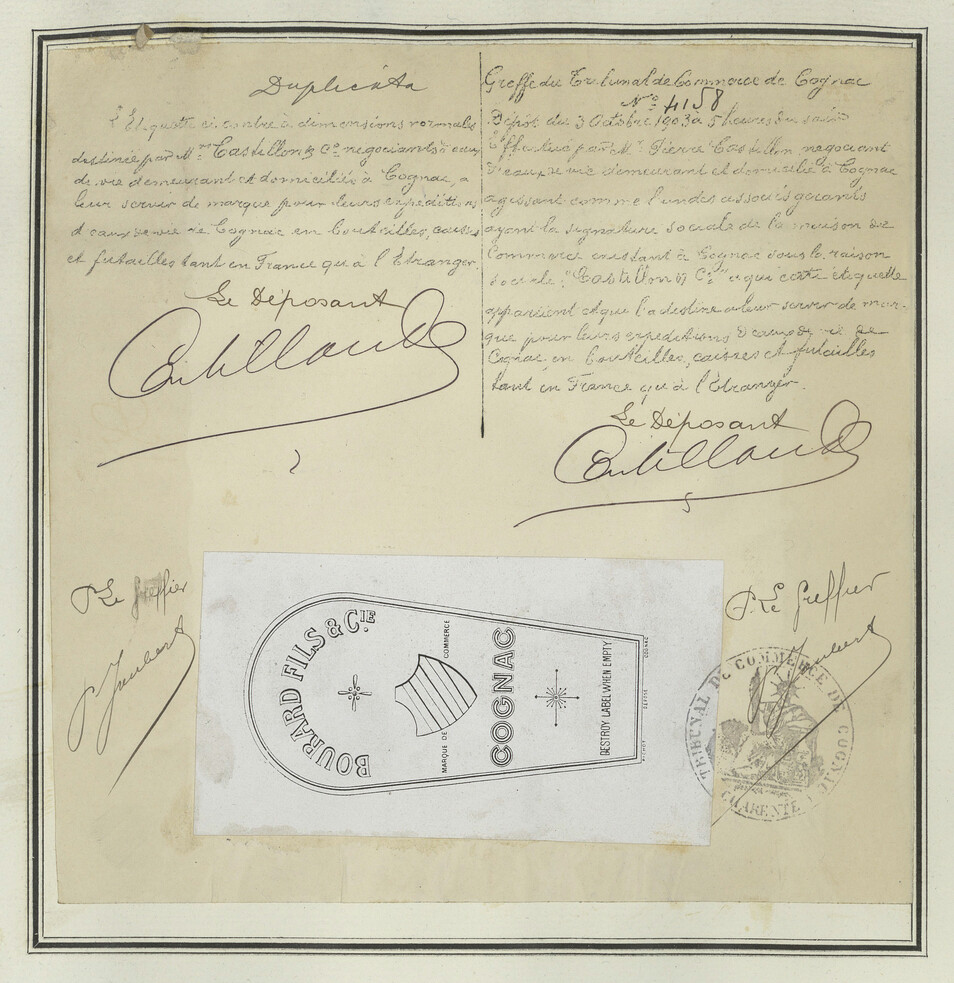 Duplicata
L'Etiquette ci contre à dimensions normales
destinée par Mrs Castillon & Cie négociants à eaux
de vie demeurant et domiciliés à Cognac, a
leur servir de marque pour leurs expéditions
d'eaux de vie de Cognac en bouteilles, caisses
et futailles tant en France qu'à l'Etranger.
Le Déposant
Greffe du Tribunal de Commerce de Cognac
No 4158
Dépôt du 3 Octobre 1903 à 5 heures du soir
Effectué par Mr Pierre Castillon négociant
d'eaux de vie demeurant et domicilié à Cognac
agissant comme l'un des associés gérants
ayant la signature sociale de la maison de
Commerce existant à Cognac sous la raison
sociale "Castillon & Cie" a qui cette étiquette
appartient et qui l'a destine a leur servir de mar-
que pour leurs expéditions d'eaux de vie de
Cognac en bouteilles, caisses et futailles
tant en France qu'à l'Etranger.
Le Déposant
P. Le Greffier
Joubert
P. Le Greffier
Joubert
BOURARD FILS & CIE
MARQUE DE COMMERCE
COGNAC
DESTROY LABEL WHEN EMPTY
DEPOSE COGNAC
TRIBUNAL DE COMMERCE DE COGNAC
CHARENTE